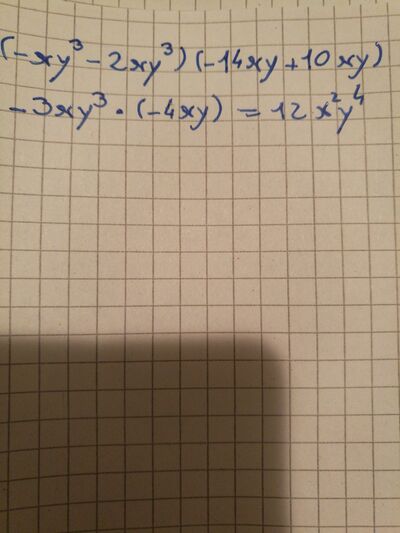 (-xy³ - 2xy³)(-14xy + 10xy)
-3xy³ · (-4xy) = 12x²y⁴